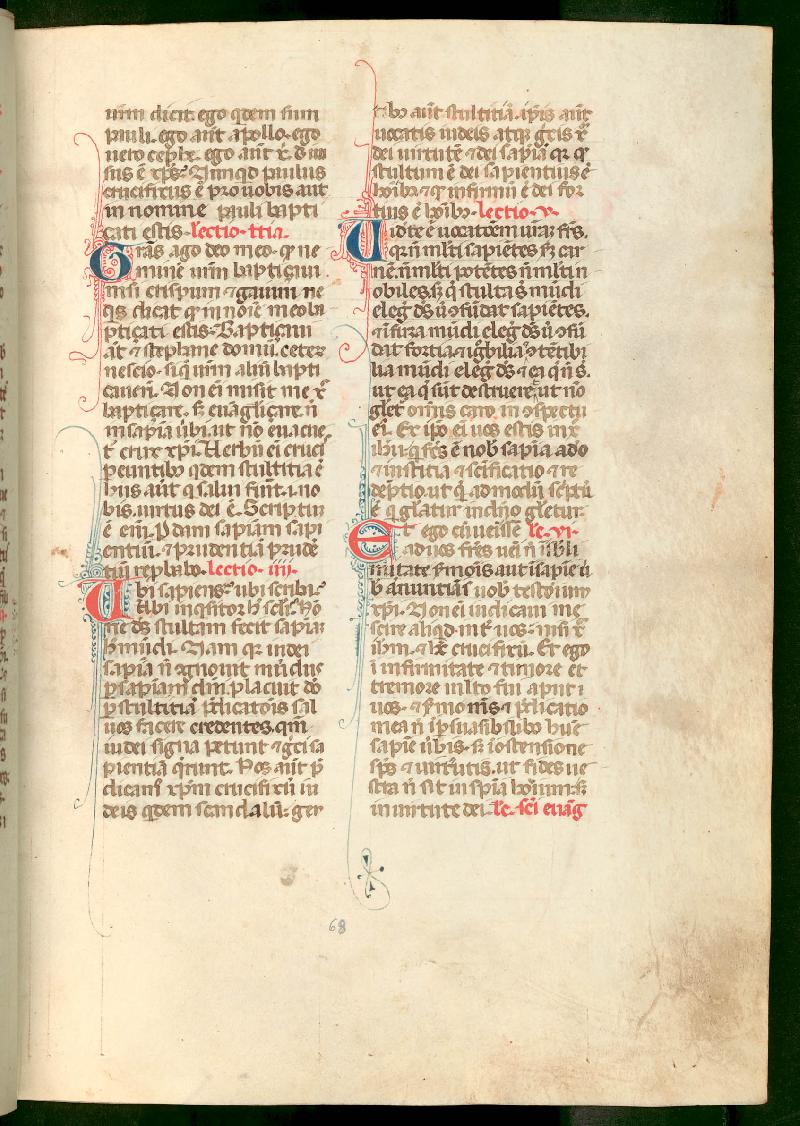 uim dicit. ego qdem sum
pauli. ego aūt apollo. ego
uero cephe. ego aūt x̄. diui
sus ē xp̄s? Nunqd paulus
crucifixus ē pro uobis aut
in nomine pauli bapti
cati estis. lectio. ttia.
Gr̄as ago deo meo. qr ne
minē urm̄ bapticaui
nisi crispum ⁊ gaium ne
qs dicat qr in noīe meo ba
pticati estis. Bapticaui
aūt ⁊ stephane domū. ceter̄
nescio. si quem aliū bapti
cauerī. Non eī misit me x̄
bapticare. s; euāglicare. n̄
in sapīa ūbi. ut nō euacue
t crux xp̄i. Uerbū eī cruci
peuntib; qdem stultitia ē
hiis aūt q salui fiunt. i. no
bis. uirtus dei ē. Scriptū
ē eīm. Pdam sapīam sapi
entiū. ⁊ prudentiā prudē
tiū reprobabo. lectio. iiij.
Ubi sapiens? ubi scriba?
ubi inqsitor hꝰ scl̄i? Nō
ne ds̄ stultam fecit sapīaꝫ
hꝰ mūdi. Nam qr in dei
sapīa n̄ ꝯgnouit mūdus
p sapīam dm̄. placuit dō
p stultitiā p̄dicatōis sal
uos facere credentes. qm̄
iudei signa petunt ⁊ gc̄i sa
pientiā q̄runt. Nos aūt p̄
dicamꝰ xp̄m crucifixū iu
deis qdem scandalū. gen
tib; aūt stultitiā. ip̄is aūt
uocatis iudeis atq; gc̄is x̄
dei uirtutē ⁊ dei sapīa qr q
stultum ē dei sapientius ē
hōib; ⁊ q infirmū ē dei for
tius ē hōib;. lectio. v.
Uidete ē uocatōem urāꝫ frs̄.
qr n̄ ml̄ti sapiētes s; car
nē. n̄ ml̄ti potētes n̄ ml̄ti n
obiles. s; q̄ stulta s̄ mūdi
eleḡ ds̄ ū ꝯfūdat sapiētes.
⁊ īfirma mūdi eleḡ ds̄ ū ꝯfū
dat fortia. ⁊ īgb̄ilia ⁊ ꝯtētibi
lia mūdi eleḡ ds̄ ⁊ ea q̄ n̄ s̄.
ut ea q̄ sūt destrueret. ut nō
glet̄ omīs caro in ꝯspectu
eiꝰ. Ex ip̄o eī uos estis in x̄
ihu. q fc̄s ē nob̄ sapīa a do
⁊ iustitia ⁊ sc̄ificatio ⁊ re
dēptio. ut q̄ ad modū sc̄ptū
ē q̄ glatur in dn̄o gletur.
Et ego cū ueissē le. vi.
ad uos frēs ueī n̄ ī subli
mitate sermōis aut sapīe ū
b annuntiās uob testōium
xp̄i. Non eī iudicaui me
scire aliqd int̄ uos. nisi x̄
ihm̄. ⁊ hc̄ crucifixū. Et ego
ī infirmitate ⁊ timore et
tremore multo fui aput
uos. ⁊ sermo mīs ⁊ p̄dicatio
mea n̄ ī p̄suasibilib; hu͞e
sapīe ūbis. s; ī ostensione
sp̄s ⁊ uirtutis. ut fides ue
stra n̄ sit in sapīa hoīum. s;
in uirtute dei. le. sc̄i euāg
68